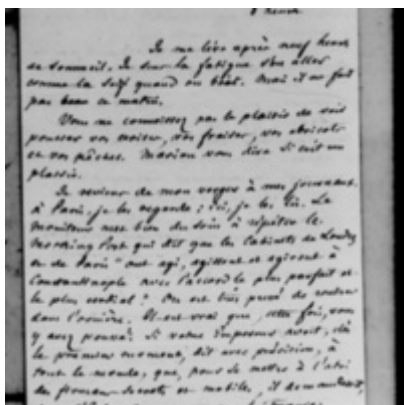 8 heures
Je me lève après neuf heures
de sommeil. Je sens la fatigue s'en aller
comme la soif quand on boit. Mais il ne fait
pas beau ce matin.
Vous ne connaissez pas le plaisir de voir
pousser vos noisettes, vos fraises, vos abricots
et vos pêches. Marion vous dira si c'est un
plaisir.
Je reviens de mon verger à mes journaux.
à Paris, je les regarde ; ici, je les lis. Le
moniteur met bien du soin à répéter le
Morning Post qui dit que les Cabinets de Londres
et de Paris "ont agi, agissent et agiront à
Constantinople avec l'accord le plus parfait et
le plus cordial". On est bien pressé de rentrer
dans l'ornière. Il est vrai que, cette fois, vous
y avez poussé. Si votre Empereur avait, dès
le premier moment, dit avec précision, à
tout le monde, que, pour se mettre à l'abri
des firmans secrets et mobiles, il demandait,